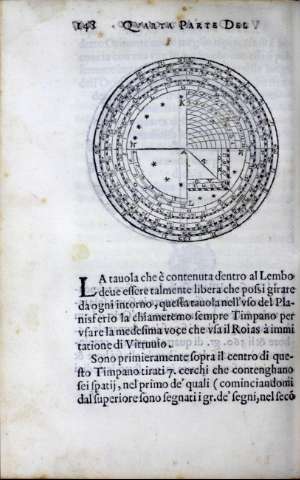 148 QVARTA PARTE DEL
LA tauola che è contenuta dentro al Lembo
deue essere talmente libera che possi girare
da ogni intorno, questa tauola nell'vso del Pla-
nisferio la chiameremo sempre Timpano per
vsare la medesima voce che vsa il Roias à immi
tatione di Vitruuio.
Sono primieramente sopra il centro di que-
sto Timpano tirati 7. cerchi che contenghano
sei spatij, nel primo de' quali (cominciandomi
dal superiore sono segnati i gr. de' segni, nel secõ